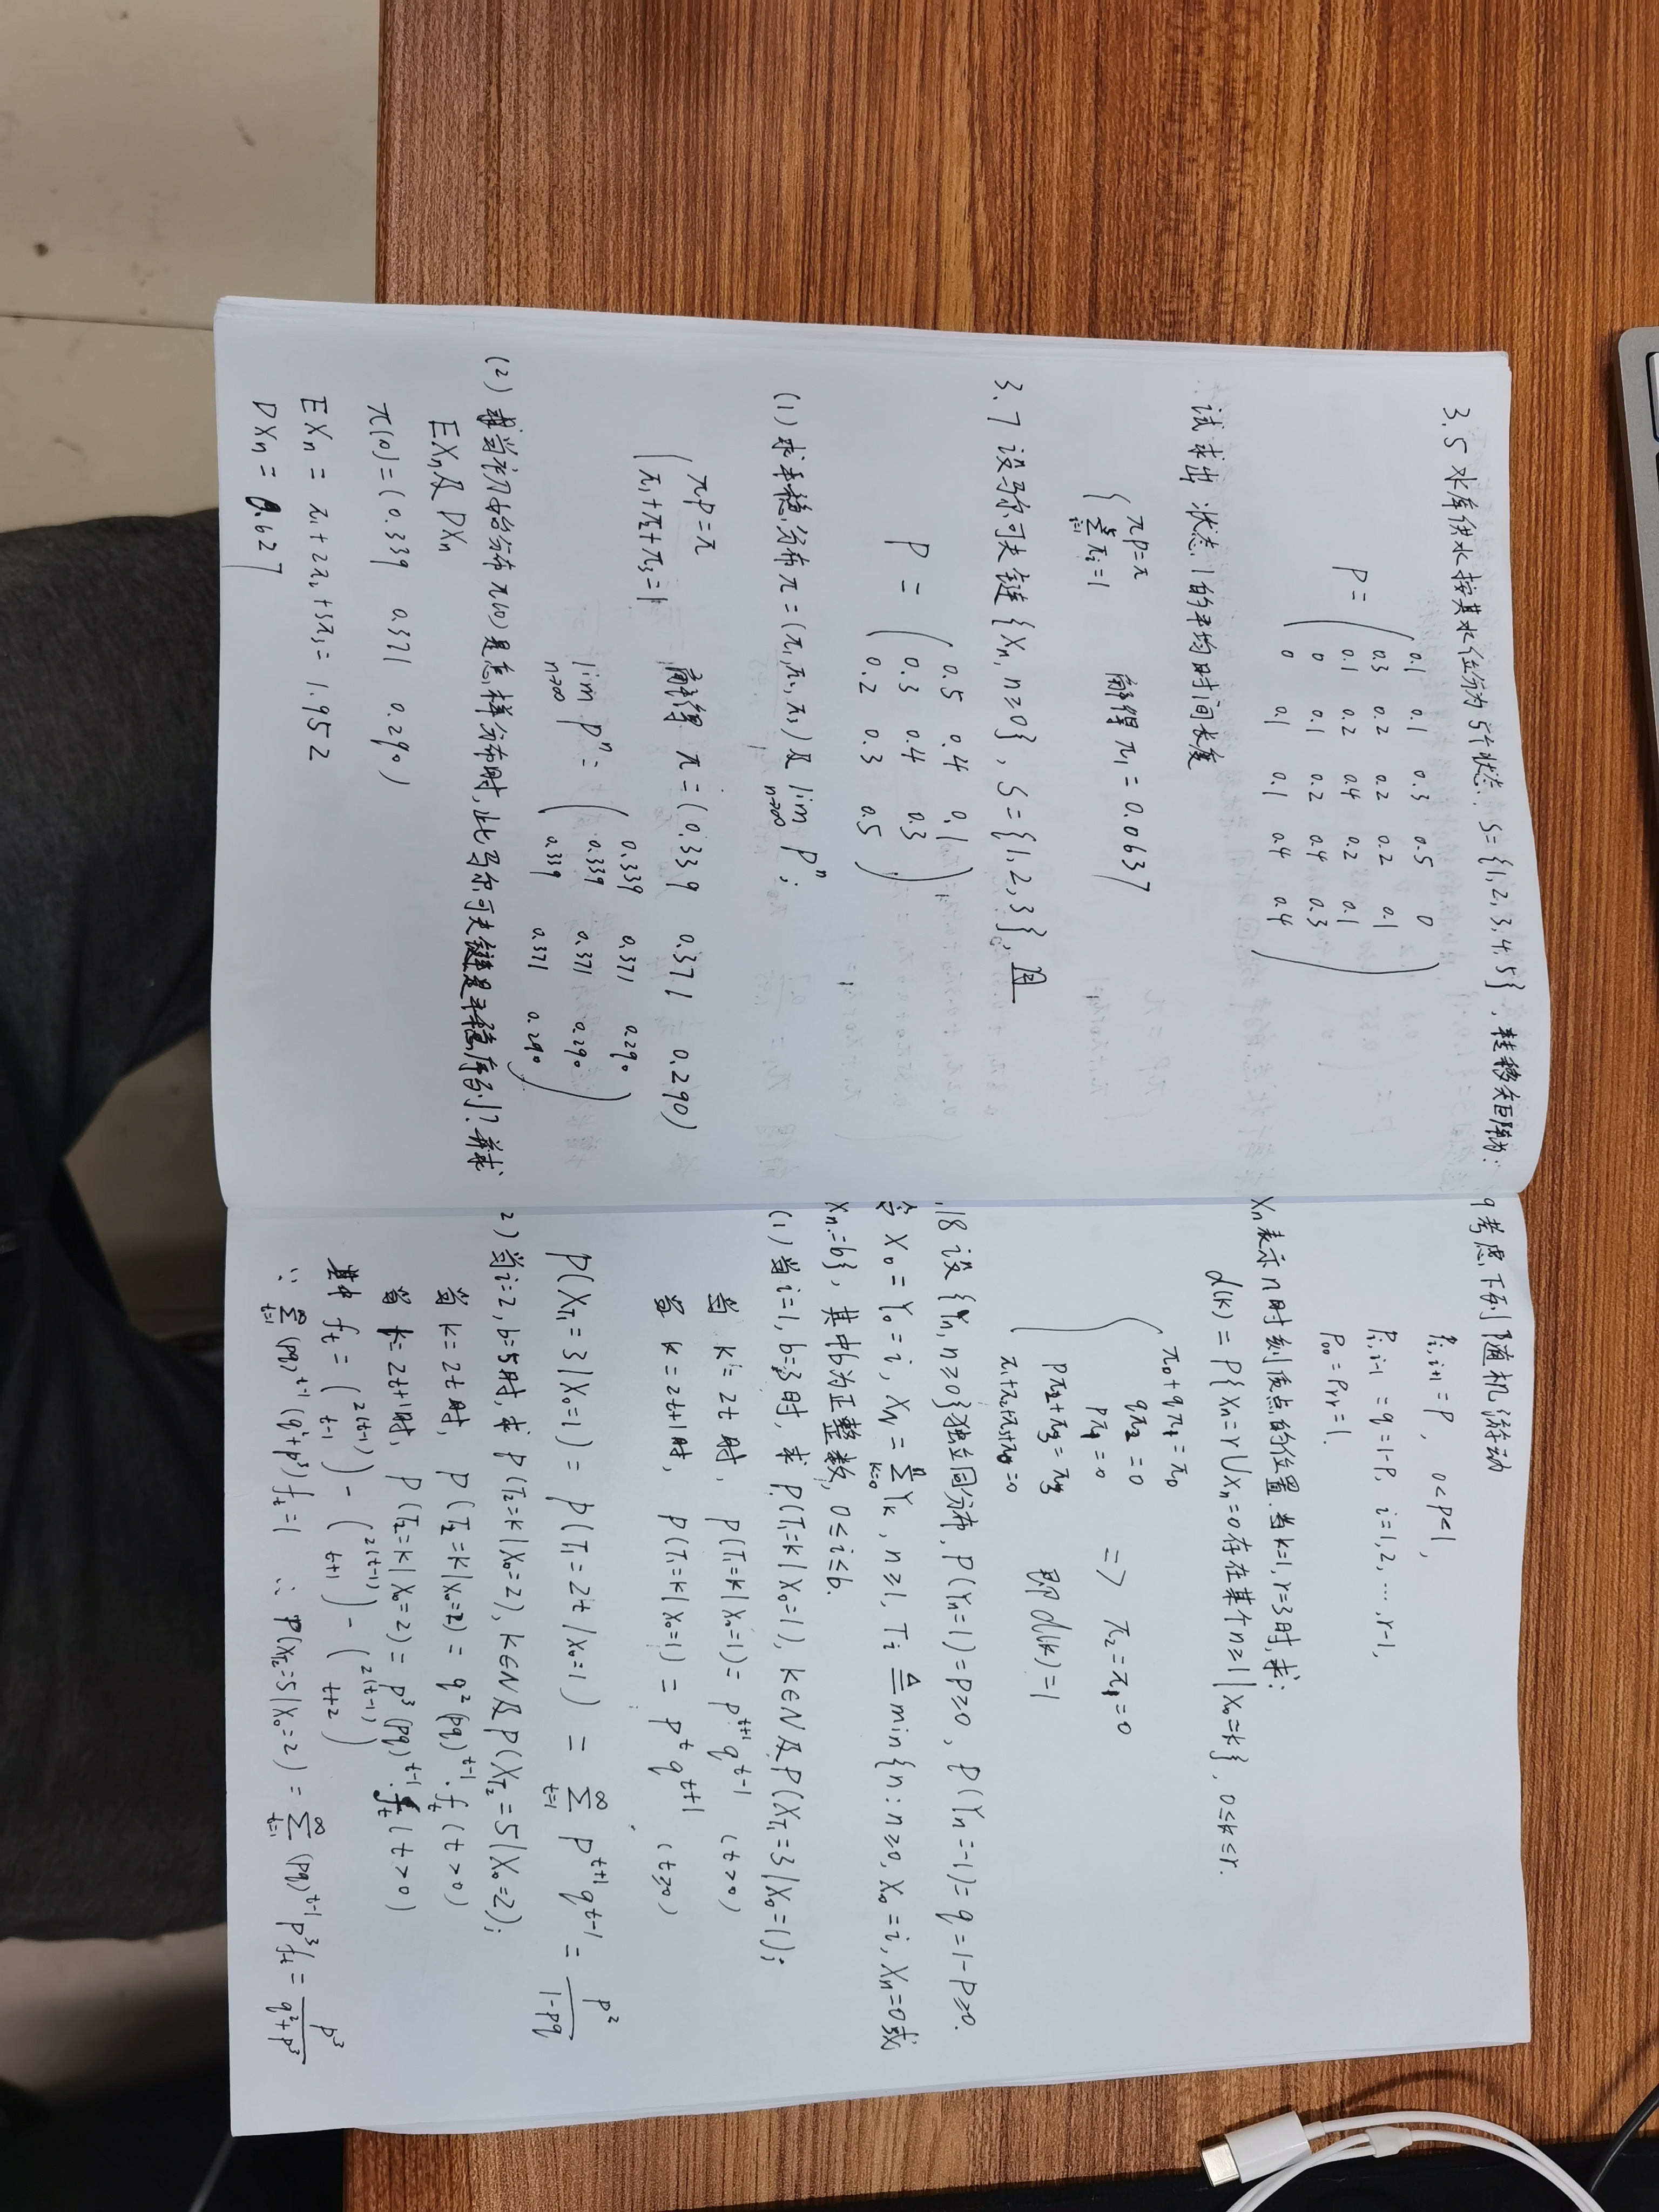 3.5 水库供水按其水位分为5个状态: S={1,2,3,4,5}, 转移矩阵为:
P= ( 0.1 0.1 0.3 0.5 0
0.3 0.2 0.2 0.2 0.1
0.1 0.2 0.4 0.2 0.1
0 0.1 0.2 0.4 0.3
0 0.1 0.1 0.4 0.4 )
试求出 状态1的平均时间长度
{ πp=π
∑πi=1 解得 π1=0.0637
3.7 设马尔可夫链{Xn, n≥0}, S={1,2,3}, 且
P = ( 0.5 0.4 0.1
0.3 0.4 0.3
0.2 0.3 0.5 )
(1) 求平稳分布π=(π1,π2,π3)及 lim n→∞ Pⁿ;
{ πp=π
π1+π2+π3=1 解得 π=(0.339 0.371 0.290)
lim n→∞ Pⁿ = ( 0.339 0.371 0.290
0.339 0.371 0.290
0.339 0.371 0.290 )
(2) 当初始分布π(0)是怎样分布时,此马尔可夫链是平稳序列?并求
EXn及 DXn
π(0)=(0.339 0.371 0.290)
EXn = π1+2π2+3π3=1.952
DXn = 0.627
9 考虑下列随机游动
Pi,i+1=P, 0<p<1,
Pi,i-1=q=1-P, i=1,2,…,r-1,
P00=Prr=1.
Xn表示n时刻质点的位置.当k=1,r=3时,求:
d(k)=P{Xn=r∪Xn=0存在某个n≥1|X0=k}, 0≤k≤r.
{ π0+qπ1=π0
qπ2=0
pπ1=0
pπ2+π3=π3
π1+π2+π3+π0=0 => π2=π1=0
即d(k)=1
.18 设{Yn,n≥0}独立同分布, P(Yn=1)=P≥0, P(Yn=-1)=q=1-P≥0.
令X0=Y0=i, XN=∑k=0 n Yk, n≥1, Ti ≜ min{n:n≥0,X0=i,Xn=0或
Xn=b}, 其中b为正整数, 0≤i≤b.
(1) 当i=1,b=3时, 求 P(T1=k|X0=1), k∈N及P(XT1=3|X0=1);
当 k=2t时, P(T1=k|X0=1)=p^{t+1}q^{t-1} (t>0)
当 k=2t+1时, P(T1=k|X0=1)=p^t q^{t+1} (t≥0)
P(XT1=3|X0=1)=P(T1=2t|X0=1)=∑t=1 ∞ p^{t+1}q^{t-1}=p²/(1-pq)
2) 当i=2,b=5时,求 P(T2=k|X0=2), k∈N及P(XT2=5|X0=2);
当 k=2t时, P(T2=k|X0=2)=q²(pq)^{t-1}·ft (t>0)
当 k=2t+1时, P(T2=k|X0=2)=p³(pq)^{t-1}·ft (t>0)
其中 ft=(2(t-1) t-1)-(2(t-1) t+1)-(2(t-1) t+2)
∵ ∑t=1 ∞ (pq)^{t-1}(q²+p³)ft=1 ∴ P(XT2=5|X0=2)=∑t=1 ∞ (pq)^{t-1}p³ft=p³/(q²+p³)